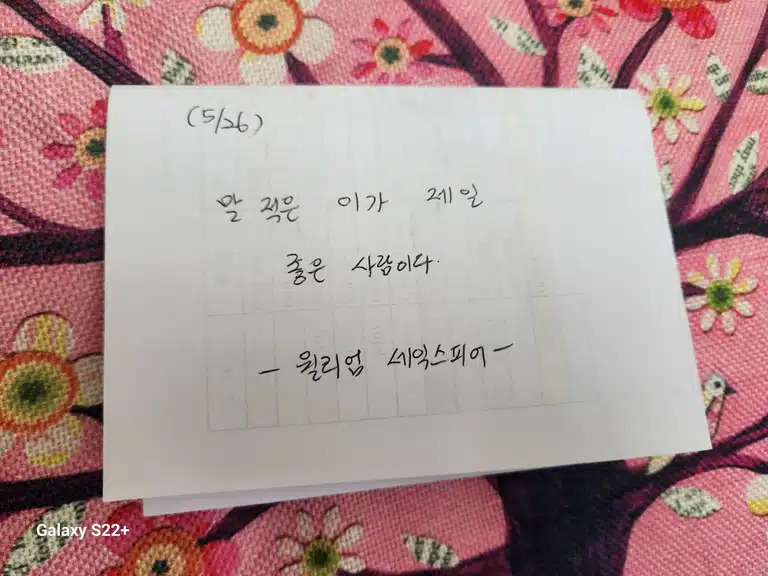 (5/26)
말 적은 이가 제일
좋은 사람이다.
- 윌리엄 세익스피어 -
Galaxy S22+